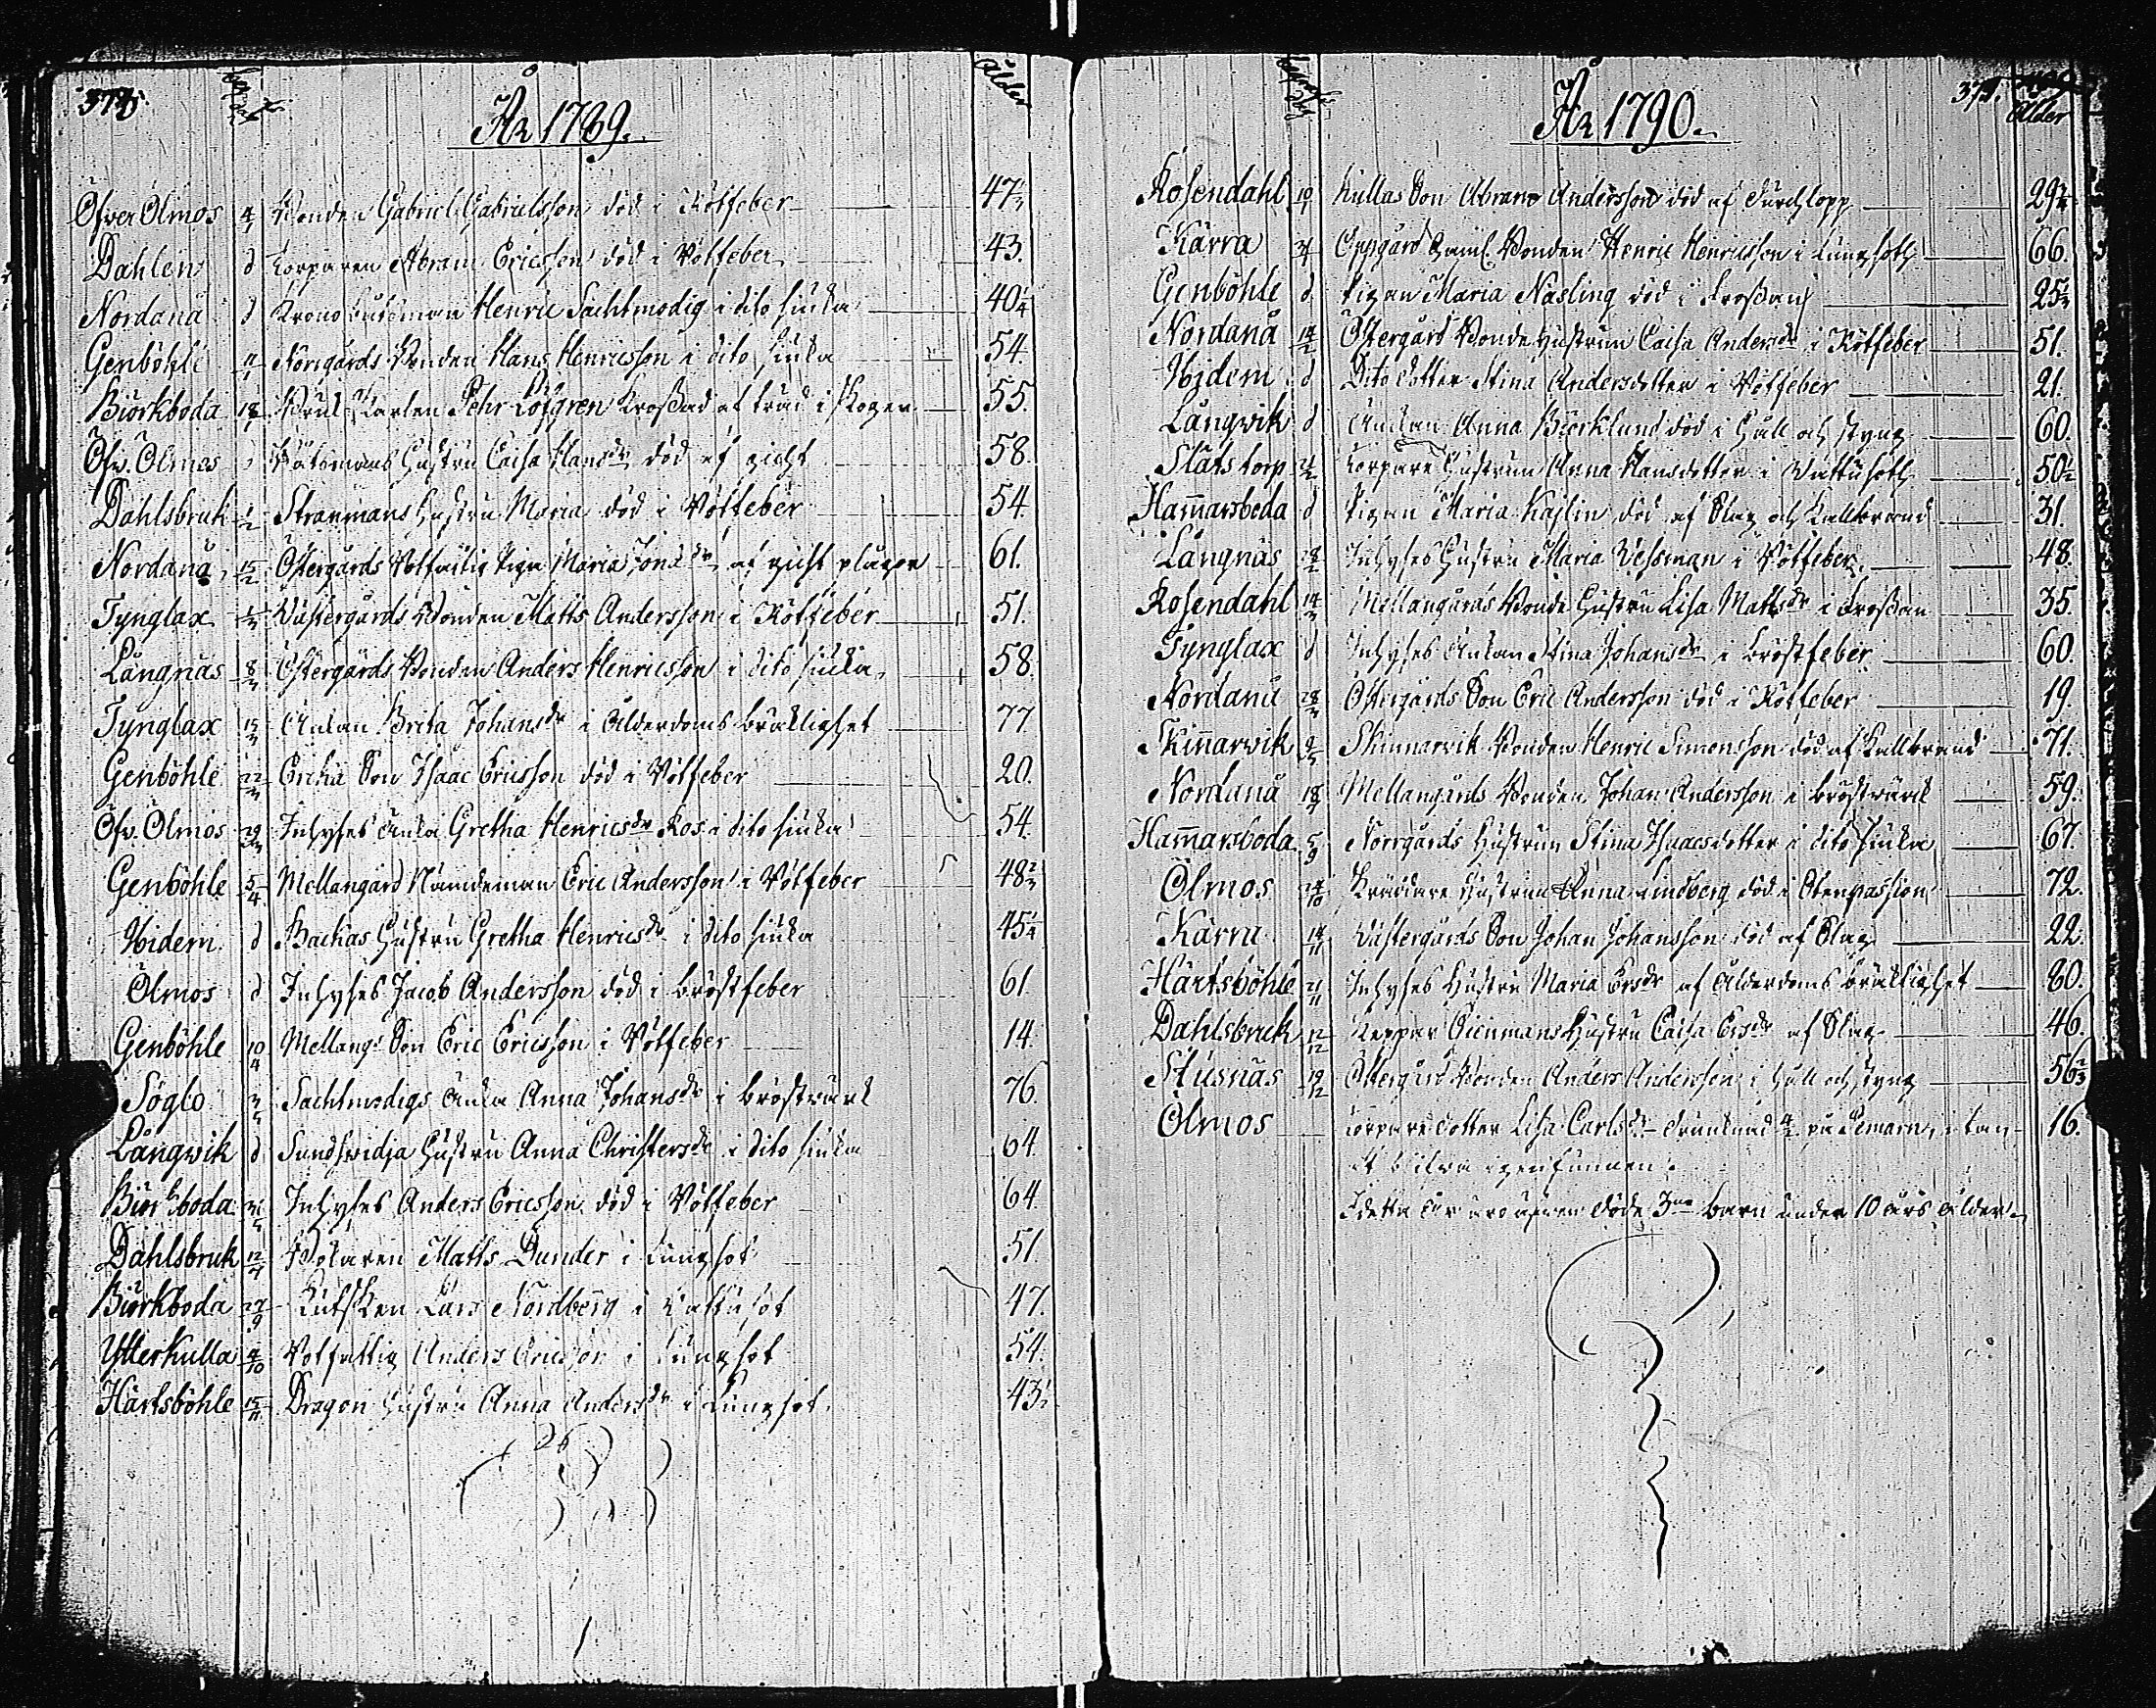 374.
Ålder
År 1789.
Öfver Ölmos 4/1 Bonden Gabriel Gabrielsson död i Rötfeber 47
Dahlen d Torparen Abram Ericsson död i Rötfeber 43.
Nordanå d Henric Sachtmodig i dito siuka 40 1/4
Genböhle Norrgårds Bonden Hans Henricsson i dito siuka 54.
Biörkboda 18/1 Bruks Karlen Pehr Löfgren Krossad af träd i skogen 55.
Öfv. Ölmos d Båtsmans Hustru Caisa Hansdr död af gicht 58.
Dahlsbruk Hustru Maria död i Rötfeber 54.
Nordanå 15/2 Östergårds Rotfattig Piga Maria af gicht plågor 61.
Tynglax Västergårds Bonden Matts Andersson i Rötfeber 51.
Långnäs 8/3 Östergårds Bonden Anders Henricsson i dito siuka 58.
Tynglax 15/3 Änkan Brita Johansdr i Ålderdoms bräcklighet 77.
Genböhle 22/3 Son Isaac Ericsson död i Rötfeber 20.
Öfv. Ölmos 29/3 Inhyses Änka Gretha Henricsdr Ros i dito siuka 54.
Genböhle 5/4 Mellangård Nämdeman Eric Andersson i Rötfeber 48 2/3
Ibidem d Backas Hustru Gretha Henricsdr i dito siuka 45 1/4
Ölmos d Inhyses Jacob Andersson död i bröstfeber 61.
Genböhle 10/4 Mellang: Son Eric Ericsson i Rötfeber 14.
Söglo 3/5 Sachtmodigs Änka Anna Johansdr i bröstvärk 76.
Långwik d Hustru Anna Christersdr i dito siuka 64.
Biörkboda Inhyses Anders Ericsson död i Rötfeber 64.
Dahlsbruk Matts Dunder i Lungsot 51.
Biörkboda 27/9 Kusken Lars Nordberg i Vattusot 47.
Ytterkulla 4/10 Rotfattig Anders Ericsson i Lungsot 54.
Härtsböhle 15/11 Dragon Hustru Anna Andersdr i Lungsot 43 1/2
26
375.
Ålder
År 1790.
Rosendahl 10/1 Kullas Son Abram Andersson död af Durchlopp 29
Kärra Oppgård Gaml. Bonden Henric Henricsson i Lungsoth 66.
Genböhle d Pigan Maria Nasling död i Frossan 25
Nordanå 14/2 Östergård Bonde Hustrun Caisa Andersdr i Rötfeber 51.
Ibidem d Dito dotter Stina Andersdotter i Rötfeber 21.
Långwik d Änkan Anna Biörklund död i Håll och styng 60.
Slätstorp Torpare Hustrun Anna Hansdotter i Vattusoth 50 1/2
Hammarsboda d Pigan Maria Kajlin död af Slag och Kallbrand 31.
Långnäs 28/2 Inhyses Hustru Maria Wessman i Rötfeber 48.
Rosendahl 14/3 Mellangårds Bonde Hustru Lisa Mattsdr i Frossan 35.
Tynglax d Inhyses Änkan Stina Johansdr i bröstfeber 60.
Nordanå 28/3 Östergårds Son Eric Andersson död i Rötfeber 19.
Skinnarwik Skinnarvik Bonden Henric Simonsson död af Kallbrand 71.
Nordanå Mellangårds Bonden Johan Andersson i bröstvärck 59.
Hammarsboda 5/9 Norrgårds Hustrun Stina Isaacsdotter i dito siuka 67.
Ölmos 24/10 Skräddare Hustrun Anna Lindberg död i Stenpassion 72.
Kärra 14/11 Västergårds Son Johan Johansson död af Slag 22.
Härtsböhle 21/11 Inhyses Hustru Maria Ersdr af Ålderdoms bräcklighet 80.
Dahlsbruk 12/12 Hustru Caisa Ersdr af Slag 46.
Stusnäs 19/12 Östergård Bonden Anders Andersson i Håll och styng 56 2/3
Ölmos Torpare dotter Lisa Carlsdr drunknad 4/2 på 16.
igenfunnen.
I detta år äro äfven döde 3ne barn under 10 års ålder.